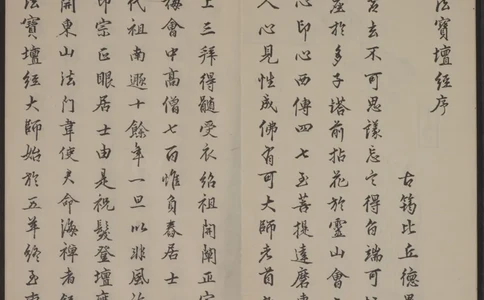 法寶壇經序
古筠比丘德異
不可思議忘言得旨端可
座於多子塔前拈花於靈山會
心印心西傳四七至菩提達磨東
人心見性成佛有可大師者首
上三拜得髓受衣紹祖開闡正宗
梅會中高僧七百惟負舂居士
代祖南遯十餘年一旦以非風
印宗正眼居士由是祝髮登壇應
開東山法門韋使君命海禪者錄
法寶壇經大師始於五羊終至曹